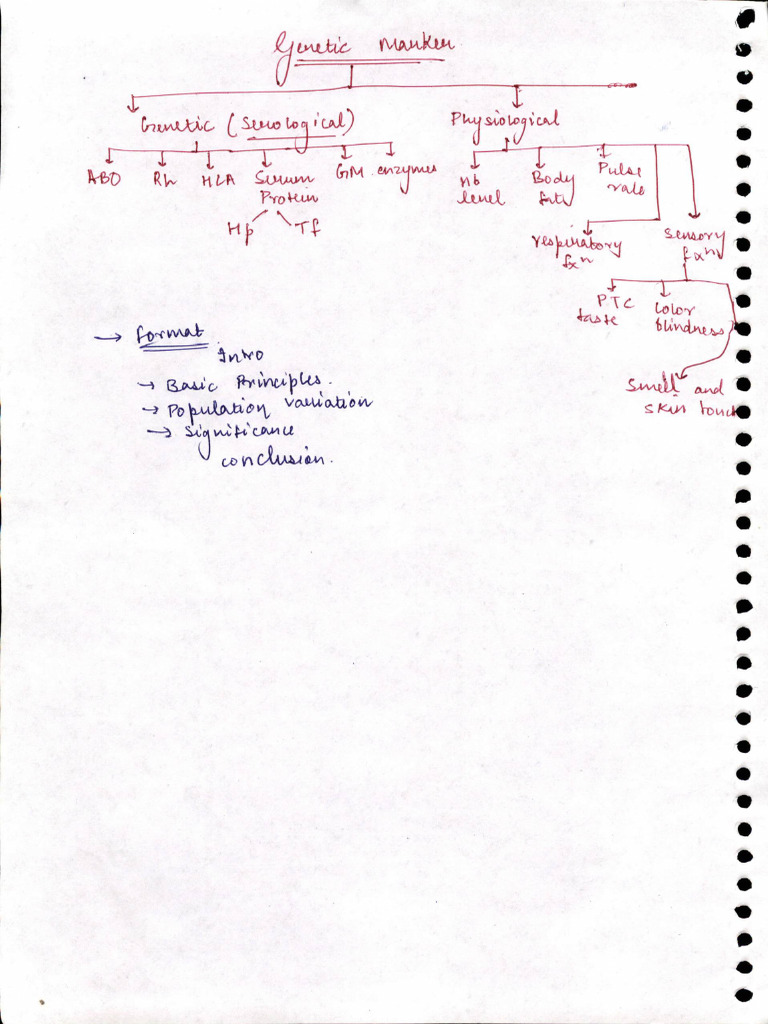 Genetic Marker
Genetic (Serological)
Physiological
ABO Rh HLA Serum Protein GM enzymes
Hp Tf
Hb level
Body fat
Pulse rate
respiratory fxn
sensory fxn
PTC taste
Color blindness
Smell and skin touch
→ format
Intro
→ Basic Principles.
→ Population variation
→ significance
conclusion.